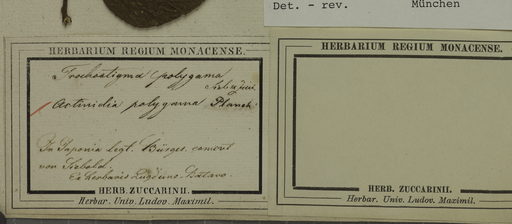 Det. - rev. München
HERBARIUM REGIUM MONACENSE.
Trochostigma polygama
Sieb. et Zucc.
Actinidia polygama Planch.
In Japonia legt. Bürger, comm.
von Siebold.
Ex Herbario Lugduno Batavo.
HERB. ZUCCARINII.
Herbar. Univ. Ludov. Maximil.
HERBARIUM REGIUM MONACENSE.
HERB. ZUCCARINII.
Herbar. Univ. Ludov. Maximil.